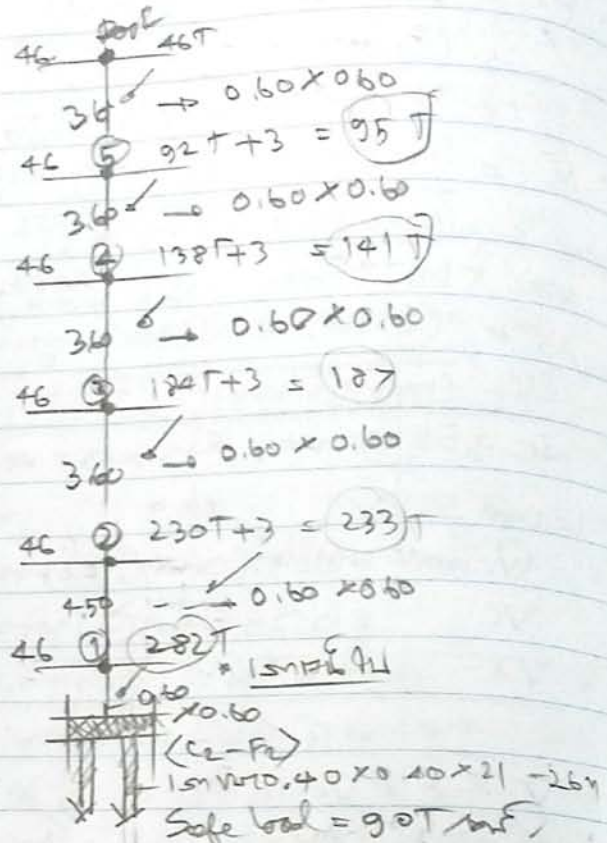 Roof
46 46T
3.60 → 0.60 × 0.60
46 ⑤ 92T+3 = 95T
3.60 → 0.60 × 0.60
46 ④ 138T+3 = 141T
3.60 → 0.60 × 0.60
46 ③ 184T+3 = 187
3.60 → 0.60 × 0.60
46 ② 230T+3 = 233T
4.50 → 0.60 × 0.60
46 ① 282T
0.60
×0.60
(C2-F2)
0.40 × 0.40 × 21 -26m
Safe load = 90T